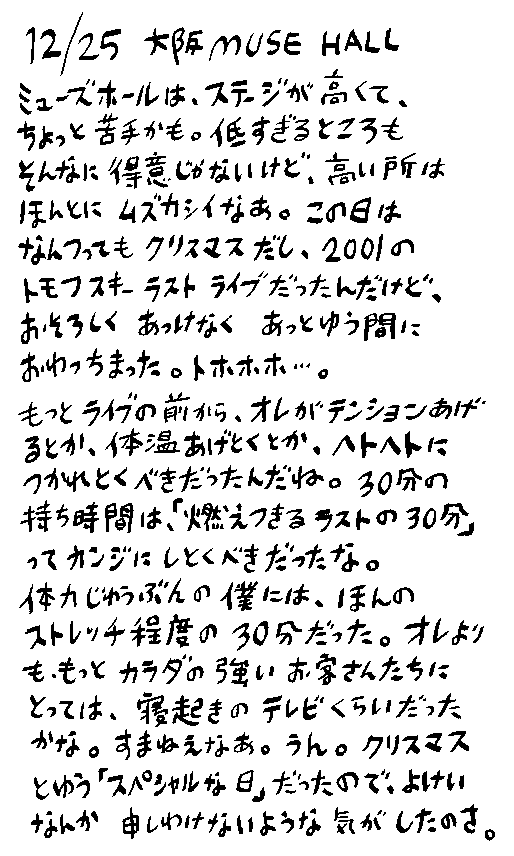 12/25 大阪 MUSE HALL
ミューズホールは、ステージが高くて、
ちょっと苦手かも。低すぎるところも
そんなに得意じゃないけど、高い所は
ほんとにムズカシイなあ。この日は
なんつってもクリスマスだし、2001の
トモフスキーラストライブだったんだけど、
おそろしくあっけなくあっとゆう間に
おわっちまった。トホホホ…。
もっとライブの前から、オレがテンションあげ
るとか、体温あげとくとか、ヘトヘトに
つかれとくべきだったんだね。30分の
持ち時間は、「燃えつきるラストの30分」
ってカンジにしとくべきだったな。
体力じゅうぶんの僕には、ほんの
ストレッチ程度の30分だった。オレより
も、もっとカラダの強いお客さんたちに
とっては、寝起きのテレビくらいだった
かな。すまねえなあ。うん。クリスマス
とゆう「スペシャルな日」だったので、よけい
なんか申しわけないような気がしたのさ。